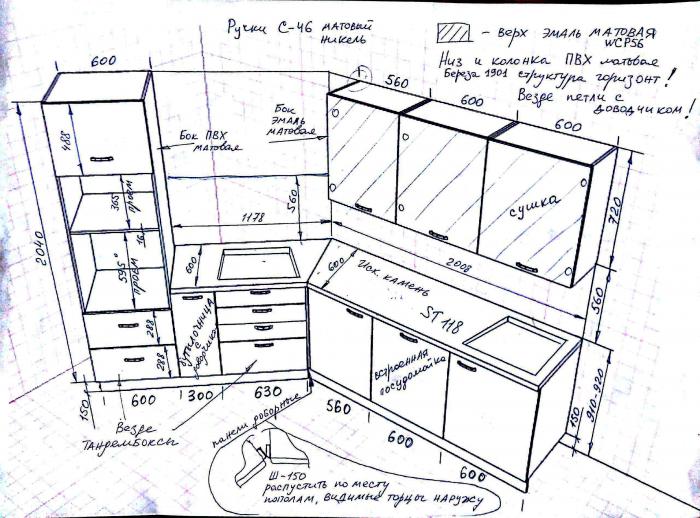 Ручки С-46 матовый
никель
— верх эмаль матовая
WCP56
Низ и колонка ПВХ матовая
Береза 1901 структура горизонт!
Везде петли с
доводчиком!
600
1
560
600
600
488
Бок ПВХ
матовая
Бок
эмаль
матовая
365
проем
16
595
проем
2040
560
1178
сушка
720
2008
560
600
600
Иск. камень
ST 118
Бутылочница
с
288
288
встроенная
посудомойка
150
600
300
630
560
600
600
150
910-920
Везде
Танрембоксы
панели
Ш-150
распустить по месту
пополам, видимые торцы наружу